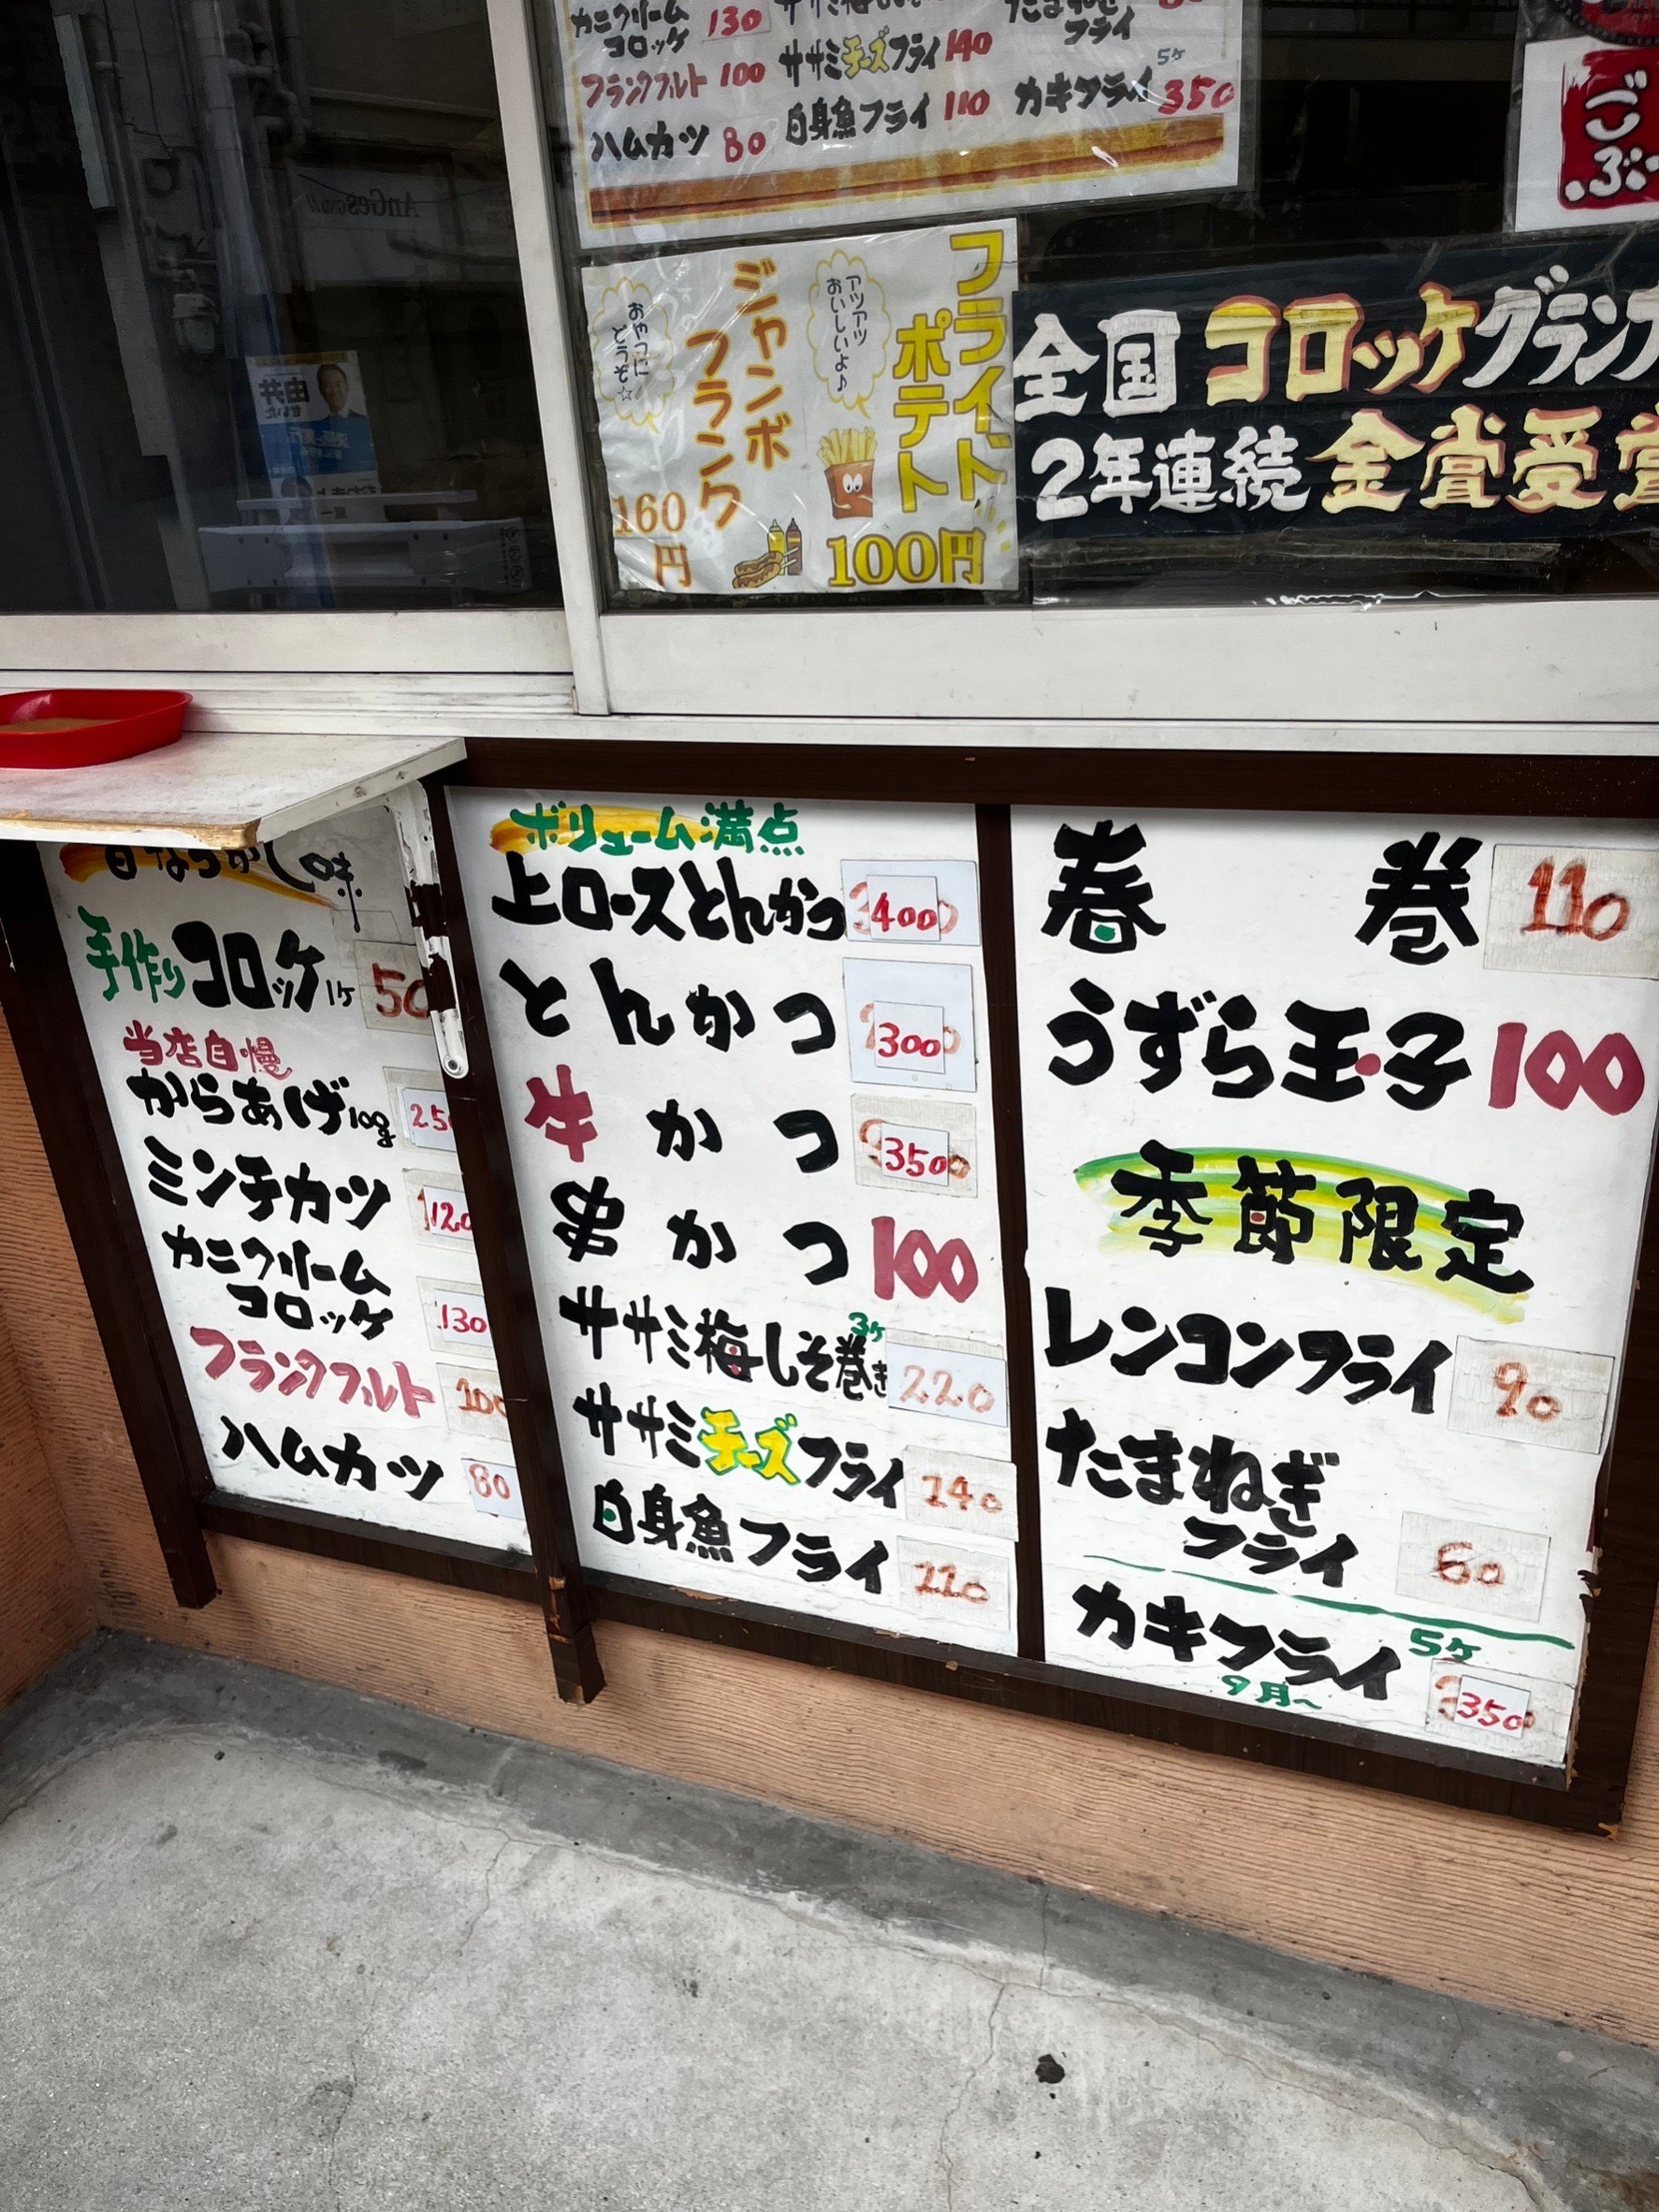 カニクリーム
コロッケ 130
フランクフルト 100
ハムカツ 80
ササミチーズフライ 140
白身魚フライ 110
フライ
カキフライ 5ケ 350
おやつに
どうぞ☆
ジャンボ
フランク
160
円
アツアツ
おいしいよ♪
フライド
ポテト
100円
全国コロッケグラン
2年連続金賞受賞
昔なつかし味
手作りコロッケ1ケ 50
当店自慢
からあげ100g 250
ミンチカツ 120
カニクリーム
コロッケ 130
フランクフルト 100
ハムカツ 80
ボリューム満点
上ロースとんかつ 400
とんかつ 300
牛かつ 350
串かつ 100
ササミ梅しそ巻き 3ケ 220
ササミチーズフライ 140
白身魚フライ 110
春巻 110
うずら玉子 100
季節限定
レンコンフライ 90
たまねぎ
フライ 60
カキフライ 5ケ 350
9月〜